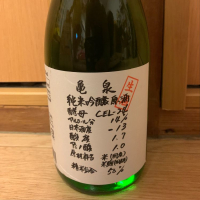 亀泉
生
純米吟醸原酒
酵母 CEL-24
アルコール分 14%
日本酒度 -13
酸度 1.7
アミノ酸 1.0
原材料名 米(国産)
精米歩合 50%